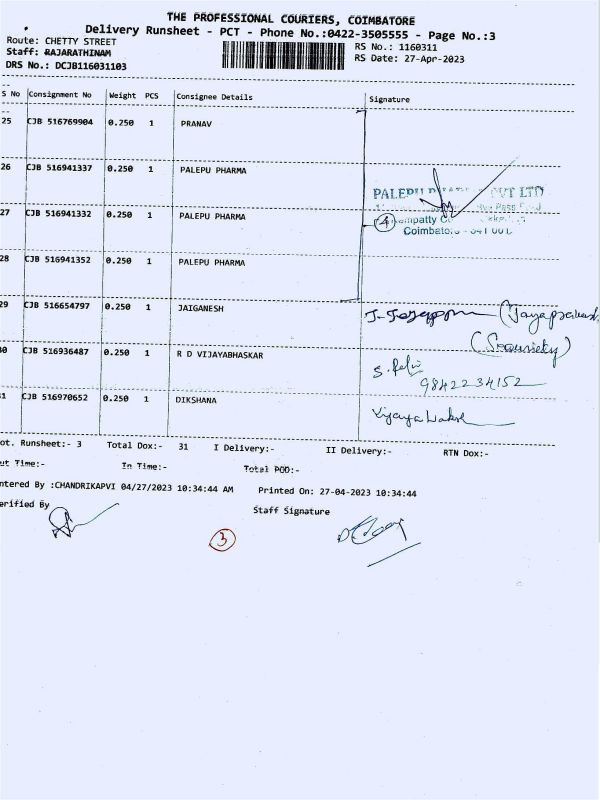 THE PROFESSIONAL COURIERS, COIMBATORE
Delivery Runsheet - PCT - Phone No.:0422-3505555 - Page No.:3
Route: CHETTY STREET
RS No.: 1160311
Staff: RAJARATHINAM
RS Date: 27-Apr-2023
DRS No.: DCJB116031103
S No Consignment No Weight PCS Consignee Details Signature
25 CJB 516769904 0.250 1 PRANAV
26 CJB 516941337 0.250 1 PALEPU PHARMA
PALEPU PVT LTD
27 CJB 516941332 0.250 1 PALEPU PHARMA
4
Coimbatore
28 CJB 516941352 0.250 1 PALEPU PHARMA
29 CJB 516654797 0.250 1 JAIGANESH
(Jayaprakash
30 CJB 516936487 0.250 1 R D VIJAYABHASKAR
(Security)
9842234152
31 CJB 516970652 0.250 1 DIKSHANA
ot. Runsheet:- 3 Total Dox:- 31 I Delivery:- II Delivery:- RTN Dox:-
ut Time:- In Time:- Total POD:-
ntered By :CHANDRIKAPVI 04/27/2023 10:34:44 AM Printed On: 27-04-2023 10:34:44
erified By
Staff Signature
3